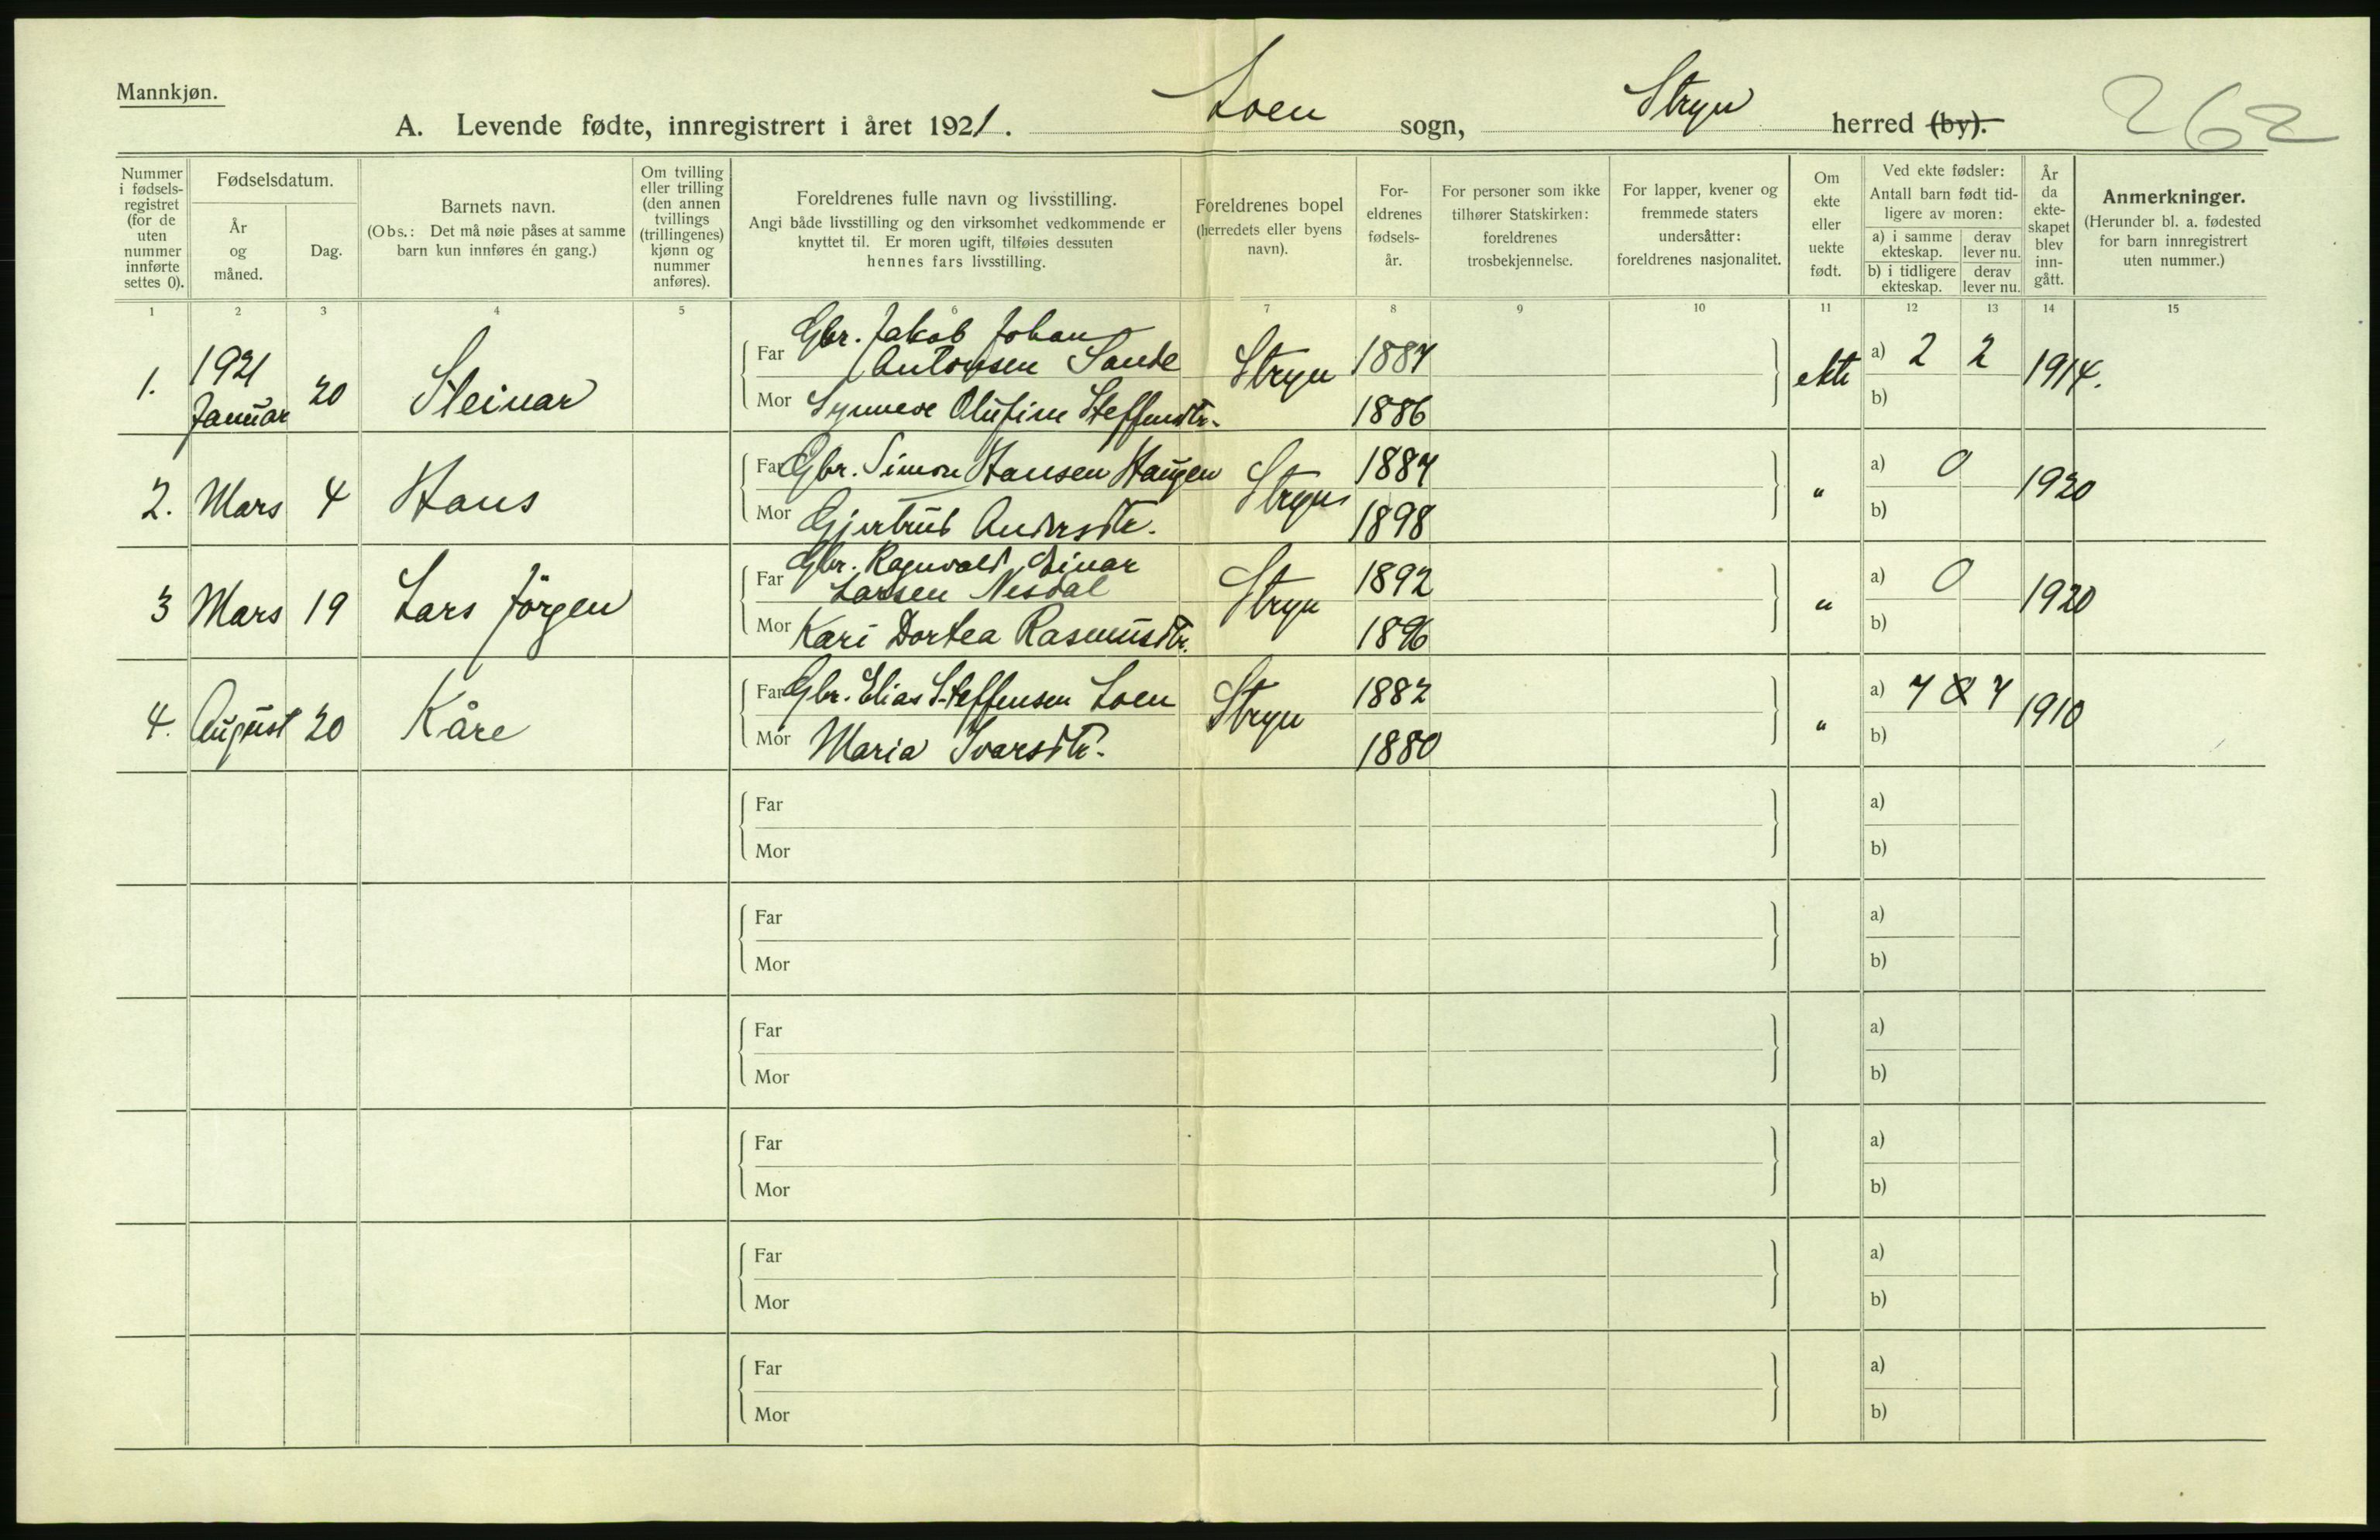 Mannkjøn.
A. Levende fødte, innregistrert i året 1921. Loen sogn, Stryn herred (by).
262
Nummer i fødsels-registret (for de uten nummer innførte settes 0).
Fødselsdatum.
År og måned.
Dag.
Barnets navn.
(Obs.: Det må nøie påses at samme barn kun innføres én gang.)
Om tvilling eller trilling (den annen tvillings (trillingenes) kjønn og nummer anføres).
Foreldrenes fulle navn og livsstilling.
Angi både livsstilling og den virksomhet vedkommende er knyttet til. Er moren ugift, tilføies dessuten hennes fars livsstilling.
Foreldrenes bopel (herredets eller byens navn).
For-eldrenes fødsels-år.
For personer som ikke tilhører Statskirken: foreldrenes trosbekjennelse.
For lapper, kvener og fremmede staters undersåtter: foreldrenes nasjonalitet.
Om ekte eller uekte født.
Ved ekte fødsler:
Antall barn født tid-ligere av moren:
a) i samme ekteskap. derav lever nu.
b) i tidligere ekteskap. derav lever nu.
År da ekte-skapet blev inn-gått.
Anmerkninger.
(Herunder bl. a. fødested for barn innregistrert uten nummer.)
1 2 3 4 5 6 7 8 9 10 11 12 13 14 15
1. 1921 Januar 20 Steinar
Far Gbr. Jakob Johan Antonsen Sande Stryn 1887 ekte a) 2 2 1914.
Mor Synneve Olufine Steffensdtr. 1886 b)
2. Mars 4 Hans
Far Gbr. Simon Hansen Haugen Stryn 1887 " a) 0 1920
Mor Gjertrud Andersdtr. 1898 b)
3 Mars 19 Lars Jörgen
Far Gbr. Ragnvald Einar Larsen Nesdal Stryn 1892 " a) 0 1920
Mor Kari Dortea Rasmusdtr. 1896 b)
4. August 20 Kåre
Far Gbr. Elias Steffensen Loen Stryn 1882 " a) 7 7 1910
Mor Maria Ivarsdtr. 1880 b)
Far a)
Mor b)
Far a)
Mor b)
Far a)
Mor b)
Far a)
Mor b)
Far a)
Mor b)
Far a)
Mor b)